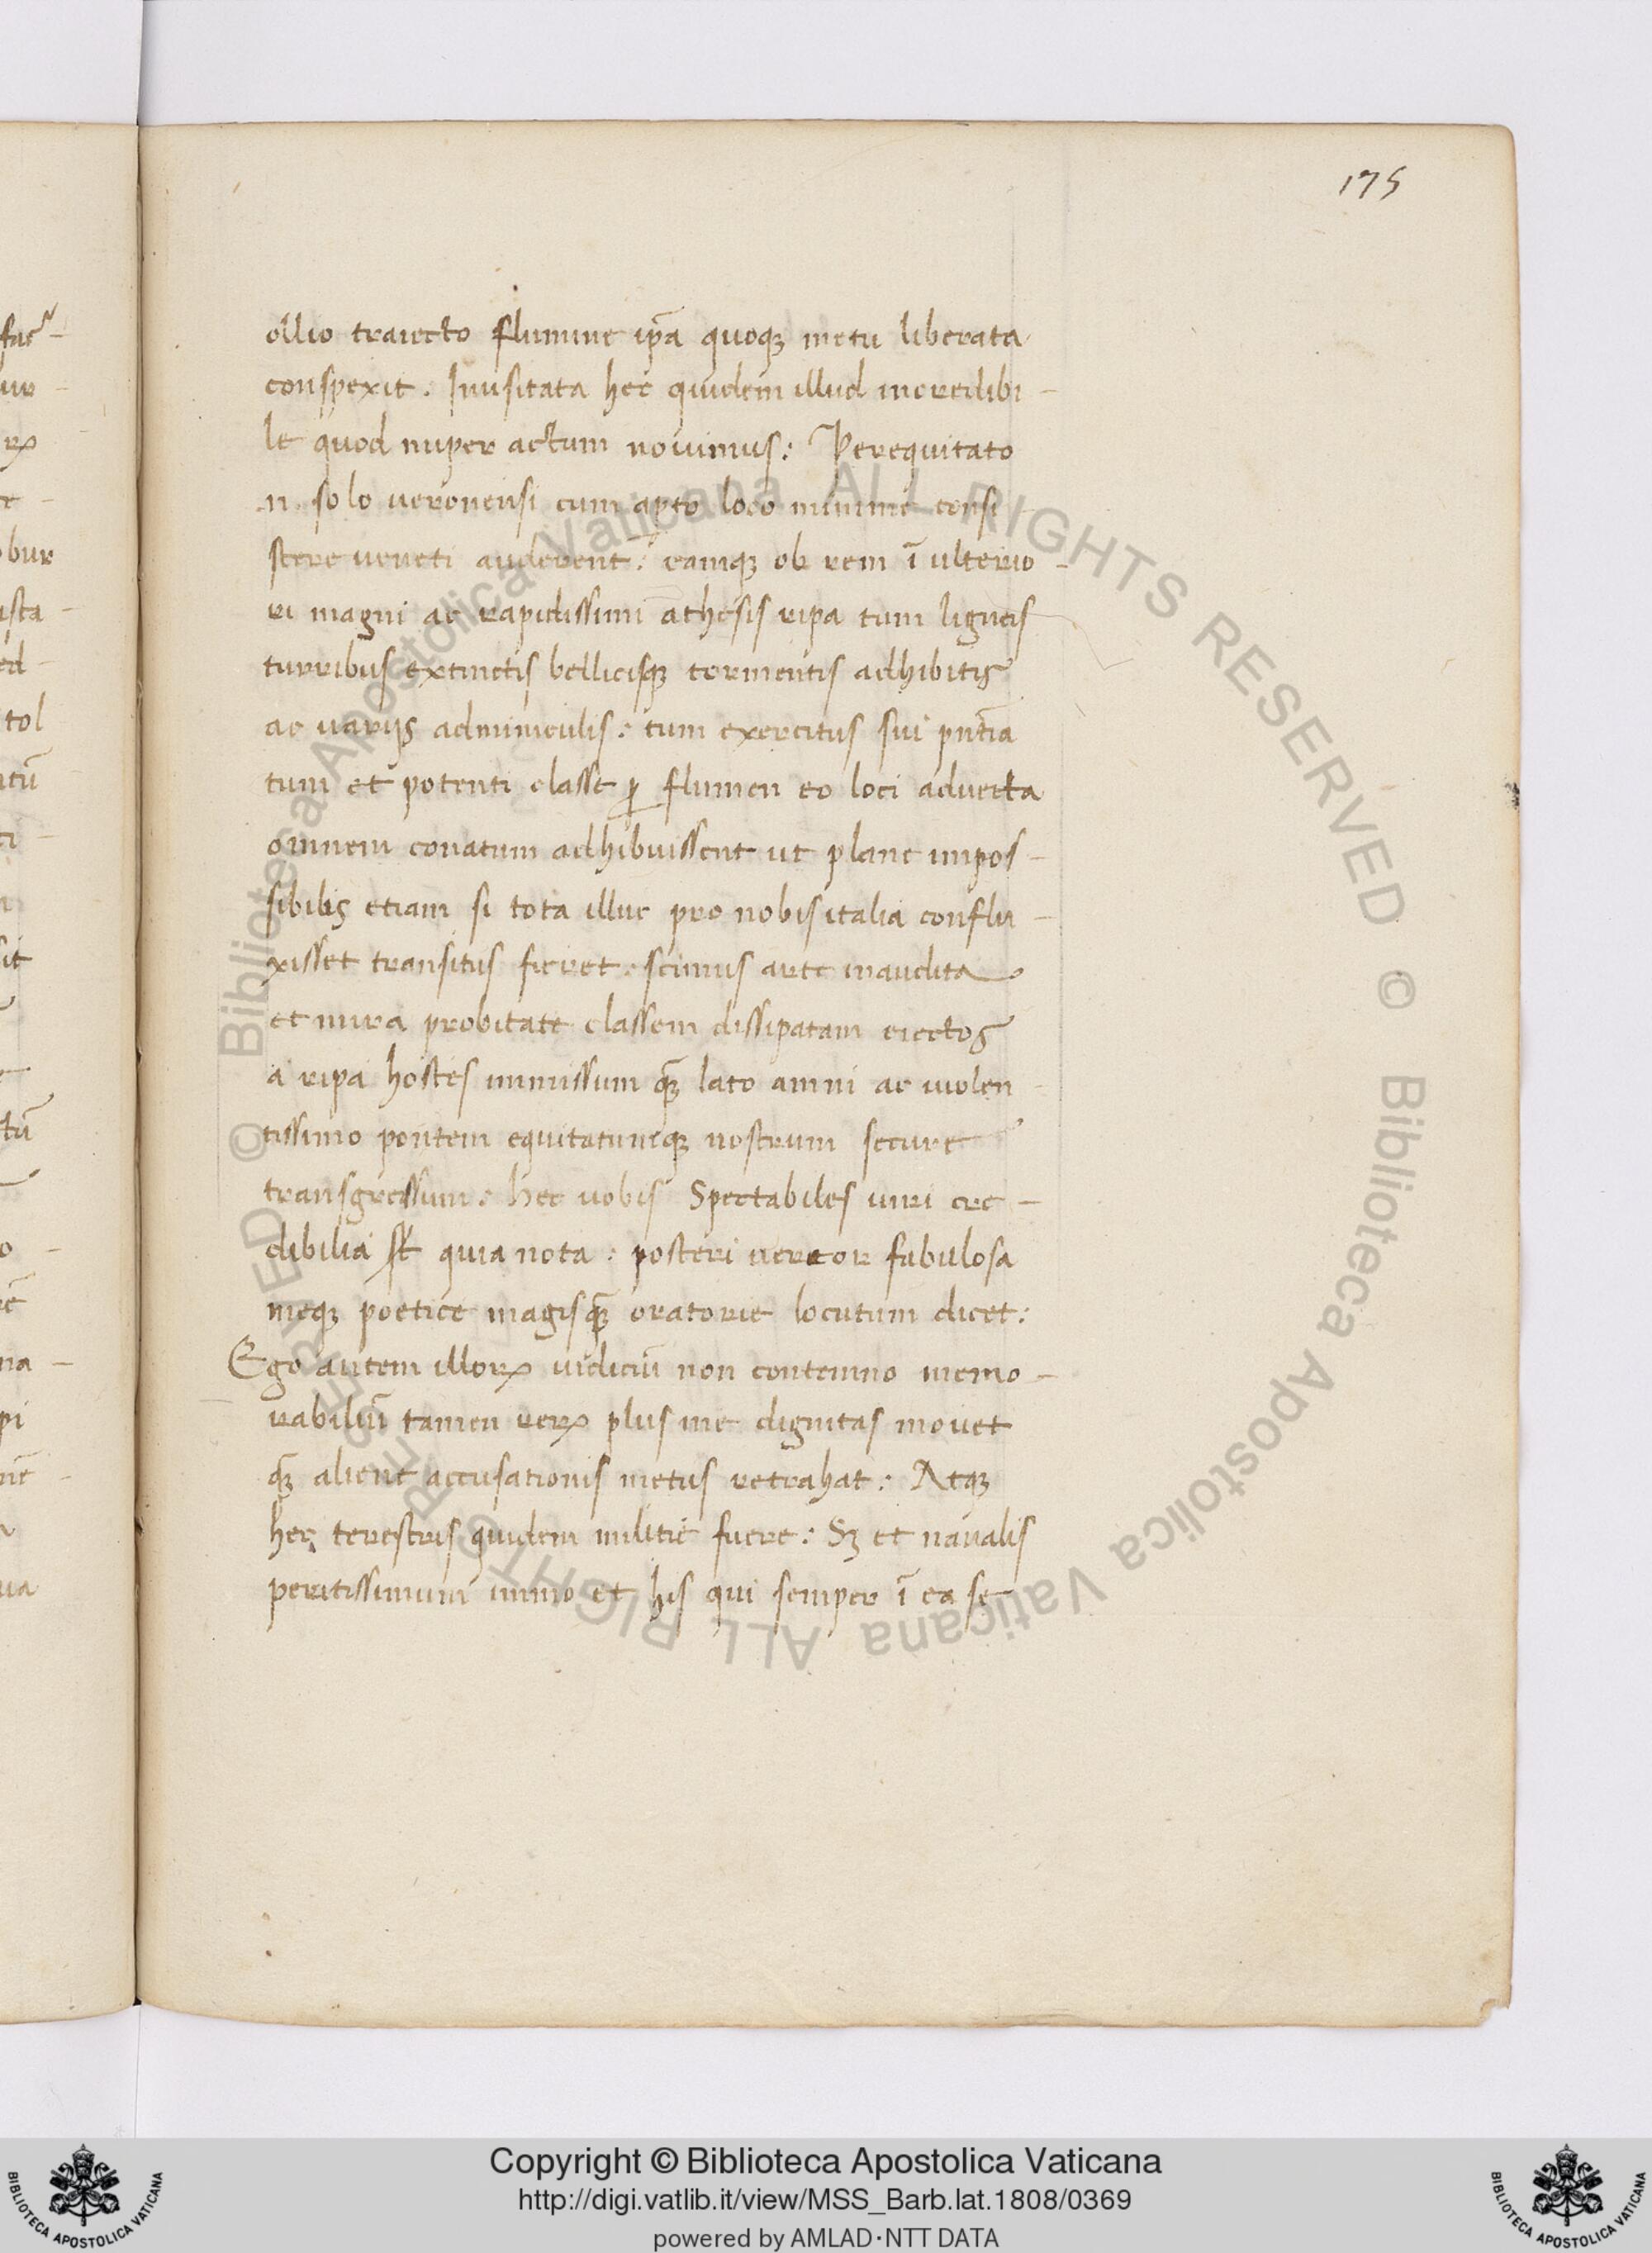 175
ollio traiecto flumine ip̄a quoqꝫ metu liberata
conspexit. Inusitata hec quidem illud incredibi-
le quod nuper actum novimus: Perequitato
.n. solo veronensi cum apto loco minime consi
stere veneti auderent: eamqꝫ ob rem ī ulterio-
ri magni ac rapidissimi athesis ripa tum ligneis
turribus extructis bellicisqꝫ tormentis adhibitis
ac variis adminiculis: tum exercitus sui pn̄tia
tum et potenti classe ꝑ flumen eo loci advecta
omnem conatum adhibuissent ut plane impos-
sibilis etiam si tota illuc pro nobis italia conflu-
xisset transitus fieret. scimus arte inaudita
et mira probitate classem dissipatam eiectos
a ripa hostes immissum qꝫ lato amni ac violen
tissimo pontem equitatumqꝫ nostrum secure
transgressum. hec vobis Spectabiles viri cre-
dibilia st̄ quia nota: posteri vereor fabulosa
meqꝫ poetice magisqꝫ̄ oratorie locutum dicet:
Ego autem illoꝝ iudiciū non contemno memo-
rabiliū tamen reꝝ plus me dignitas movet
qꝫ̄ aliene accusationis metus retrahat: Atqꝫ
hec terestris quidem militie fuere: Sꝫ et navalis
peritissimum immo et his qui semper ī ea se
Copyright © Biblioteca Apostolica Vaticana
http://digi.vatlib.it/view/MSS_Barb.lat.1808/0369
powered by AMLAD·NTT DATA